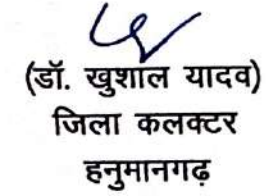 (डॉ. खुशाल यादव)
जिला कलक्टर
हनुमानगढ़